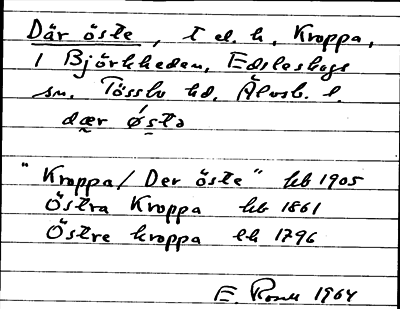 Där öste, t el. h, Kroppa,
i Björkheden, Edsleskogs
sn. Tössbo hd. Älvsb. l.
dær østə
"Kroppa/Der öste" hb 1905
Östra Kroppa hb 1861
Östre kroppa lh 1796
E. 1964